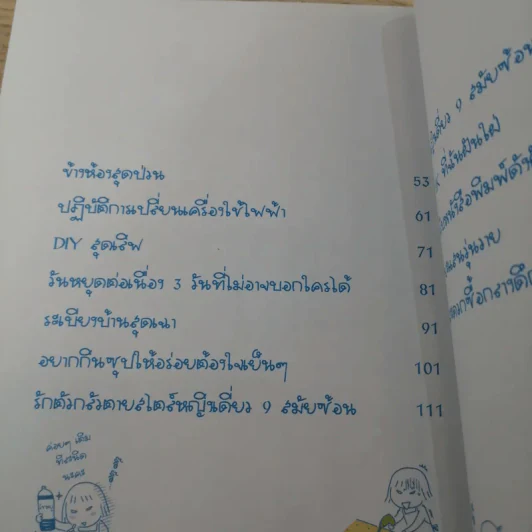 ข้างห้องสุดป่วน 53
ปฏิบัติการเปลี่ยนเครื่องใช้ไฟฟ้า 61
DIY สุดเสิฟ 71
วันหยุดต่อเนื่อง 3 วันที่ไม่อาจบอกใครได้ 81
ระเบียงบ้านสุดเฉา 91
อยากกินซุปให้อร่อยต้องใจเย็นๆ 101
รักตัวกลัวตายสไตล์หญิงเดี่ยว 9 สมัยซ้อน 111
ค่อยๆ เติม
ทีละนิด
นะคะ
เดี่ยว 9 สมัยซ้อน